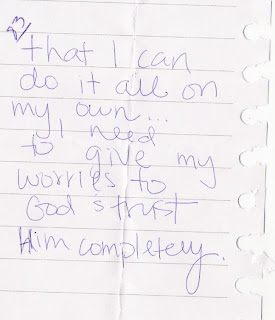 that I can
do it all on
my own...
I need
to give my
worries to
God & trust
Him completely.